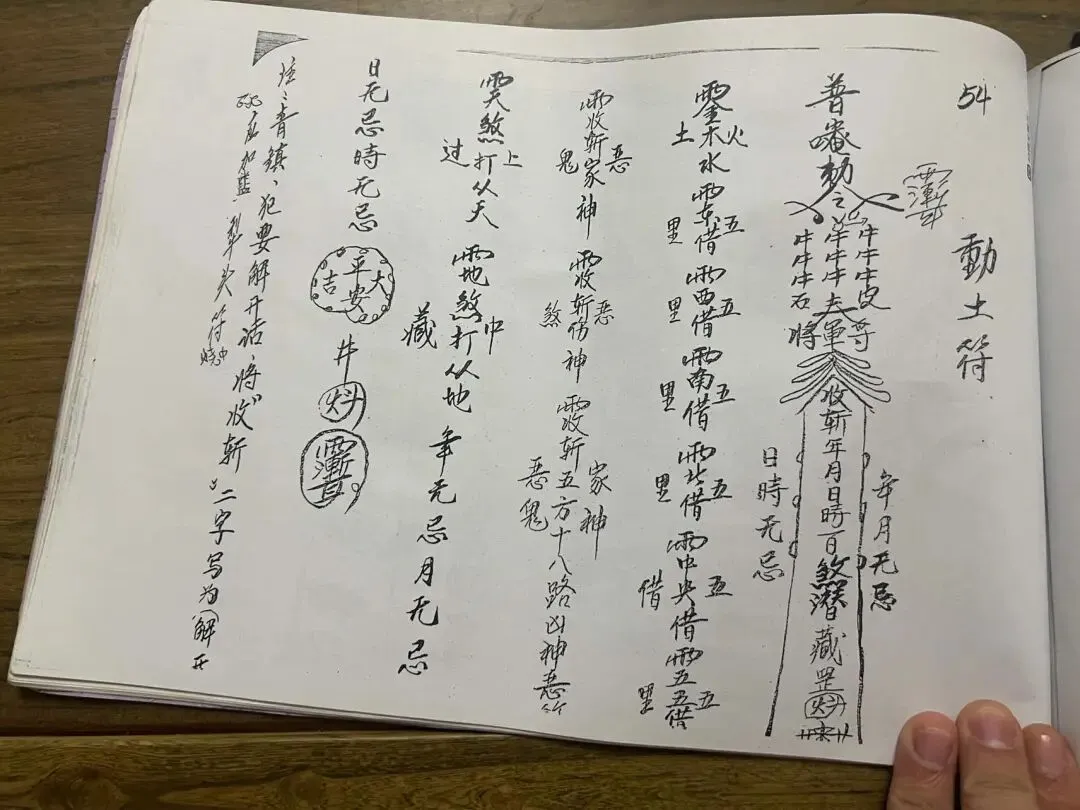 54
動土符
普唵勅令
牛牛牛皮尊
牛牛牛夫軍
牛牛牛石將
收斬年月日時百煞潛藏罡
年月无忌
日時无忌
金木水火土
東借五里
西借五里
南借五里
北借五里
中央借五
五五借五里
收斬家神惡鬼
收斬伤神惡煞
收斬五方十八路凶神惡
家神惡鬼
天煞打从天上过
地煞打从地中藏
年无忌月无忌
日无忌時无忌
平安大吉
井
注:音镇,犯要解开话,将“收斩”二字写为(解开
犁头符